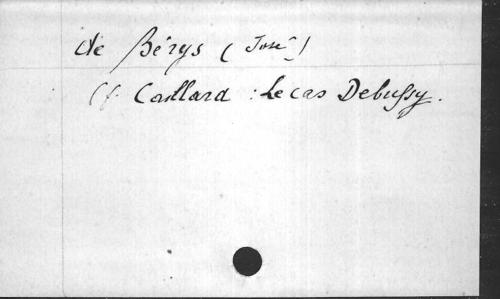 de Bérys (José)
Cf. Caillard : Le cas Debussy.